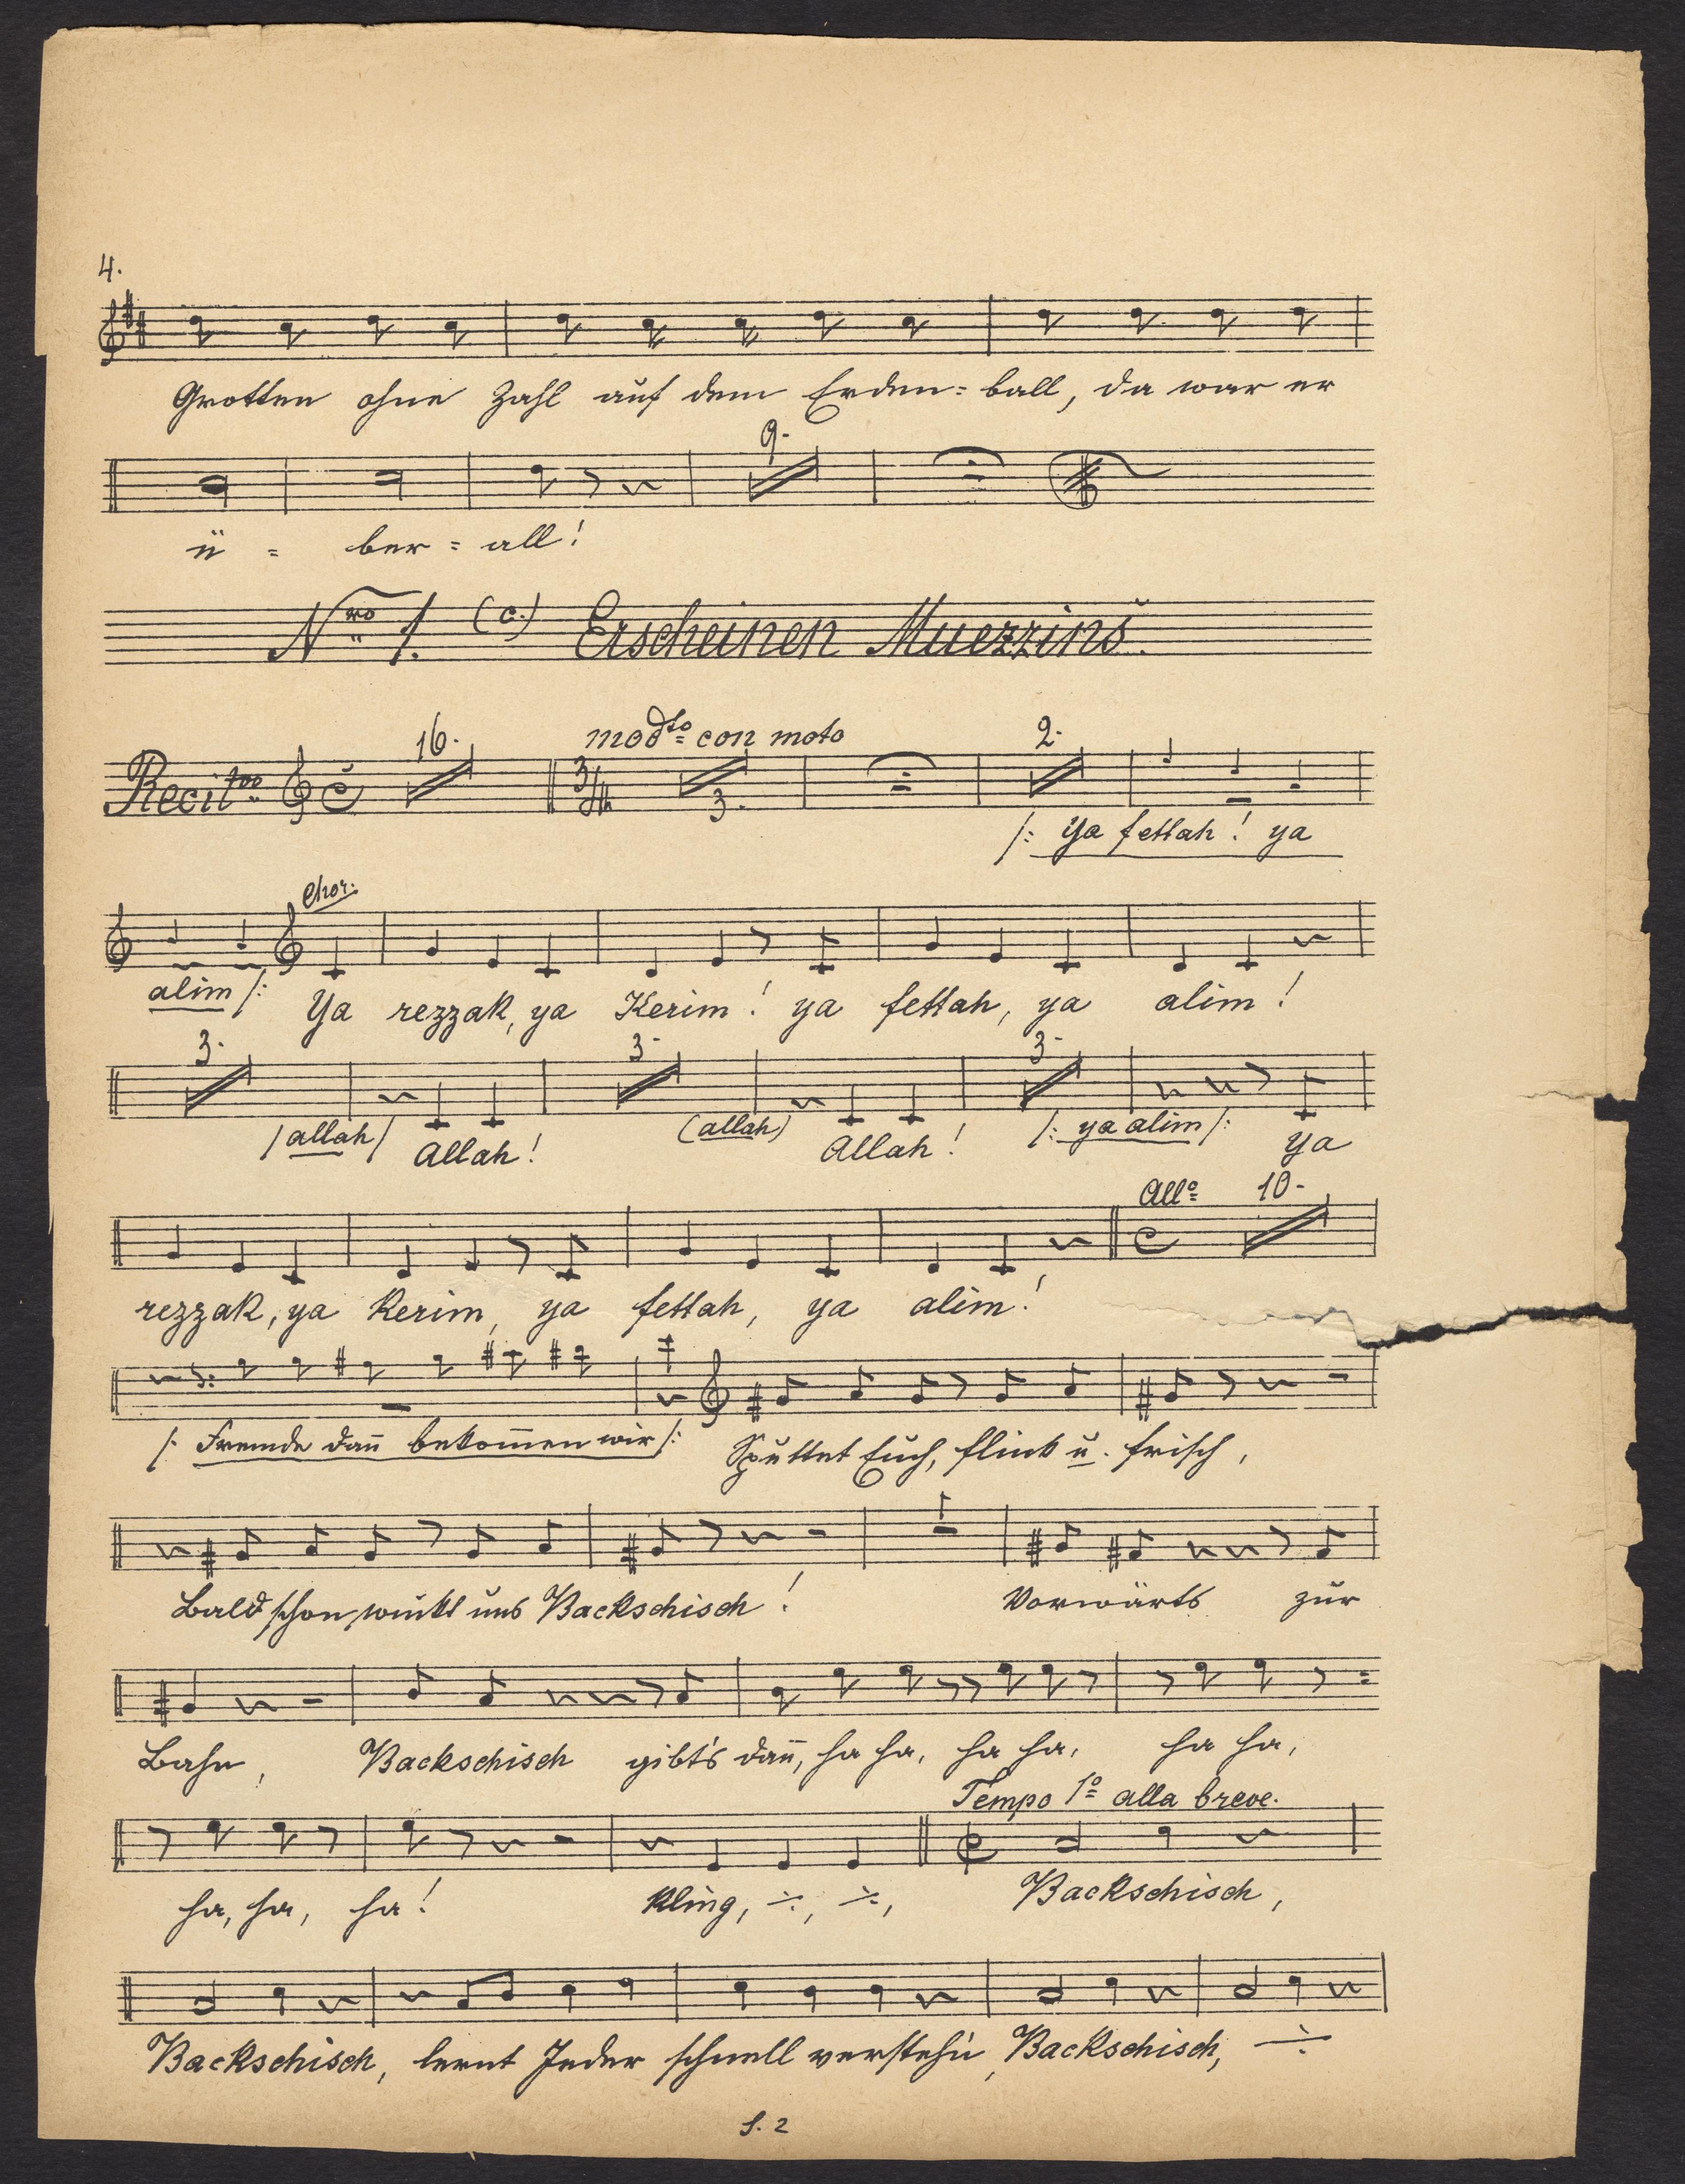 4.
Grotten ohne Zahl auf dem Erden= ball, da war er
9.
ü = ber = all!
Nro 1. (c.) Erscheinen Muezzins.
16. modto con moto 2.
Recitvo 3/4 3.
/: Ya fettah! ya
Chor.
alim /: Ya rezzak, ya Kerim! ya fettah, ya alim!
3. 3. 3.
/allah/ Allah! (allah) Allah! /: ya alim /: ya
Allo 10.
rezzak, ya Kerim, ya fettah, ya alim!
/: Fremde dan̄ bekom̄en wir /: Sputtet Euch, flink u. frisch,
1
Bald schon winkt uns Backschisch! Vorwärts zur
Bahn, Backschisch gibt's dan̄, ha ha, ha ha, ha ha,
Tempo 1o alla breve.
ha, ha, ha! Kling, ·/·, ·/·, Backschisch,
Backschisch, lernt Jeder schnell versteh'n, Backschisch, ·/·
S. 2